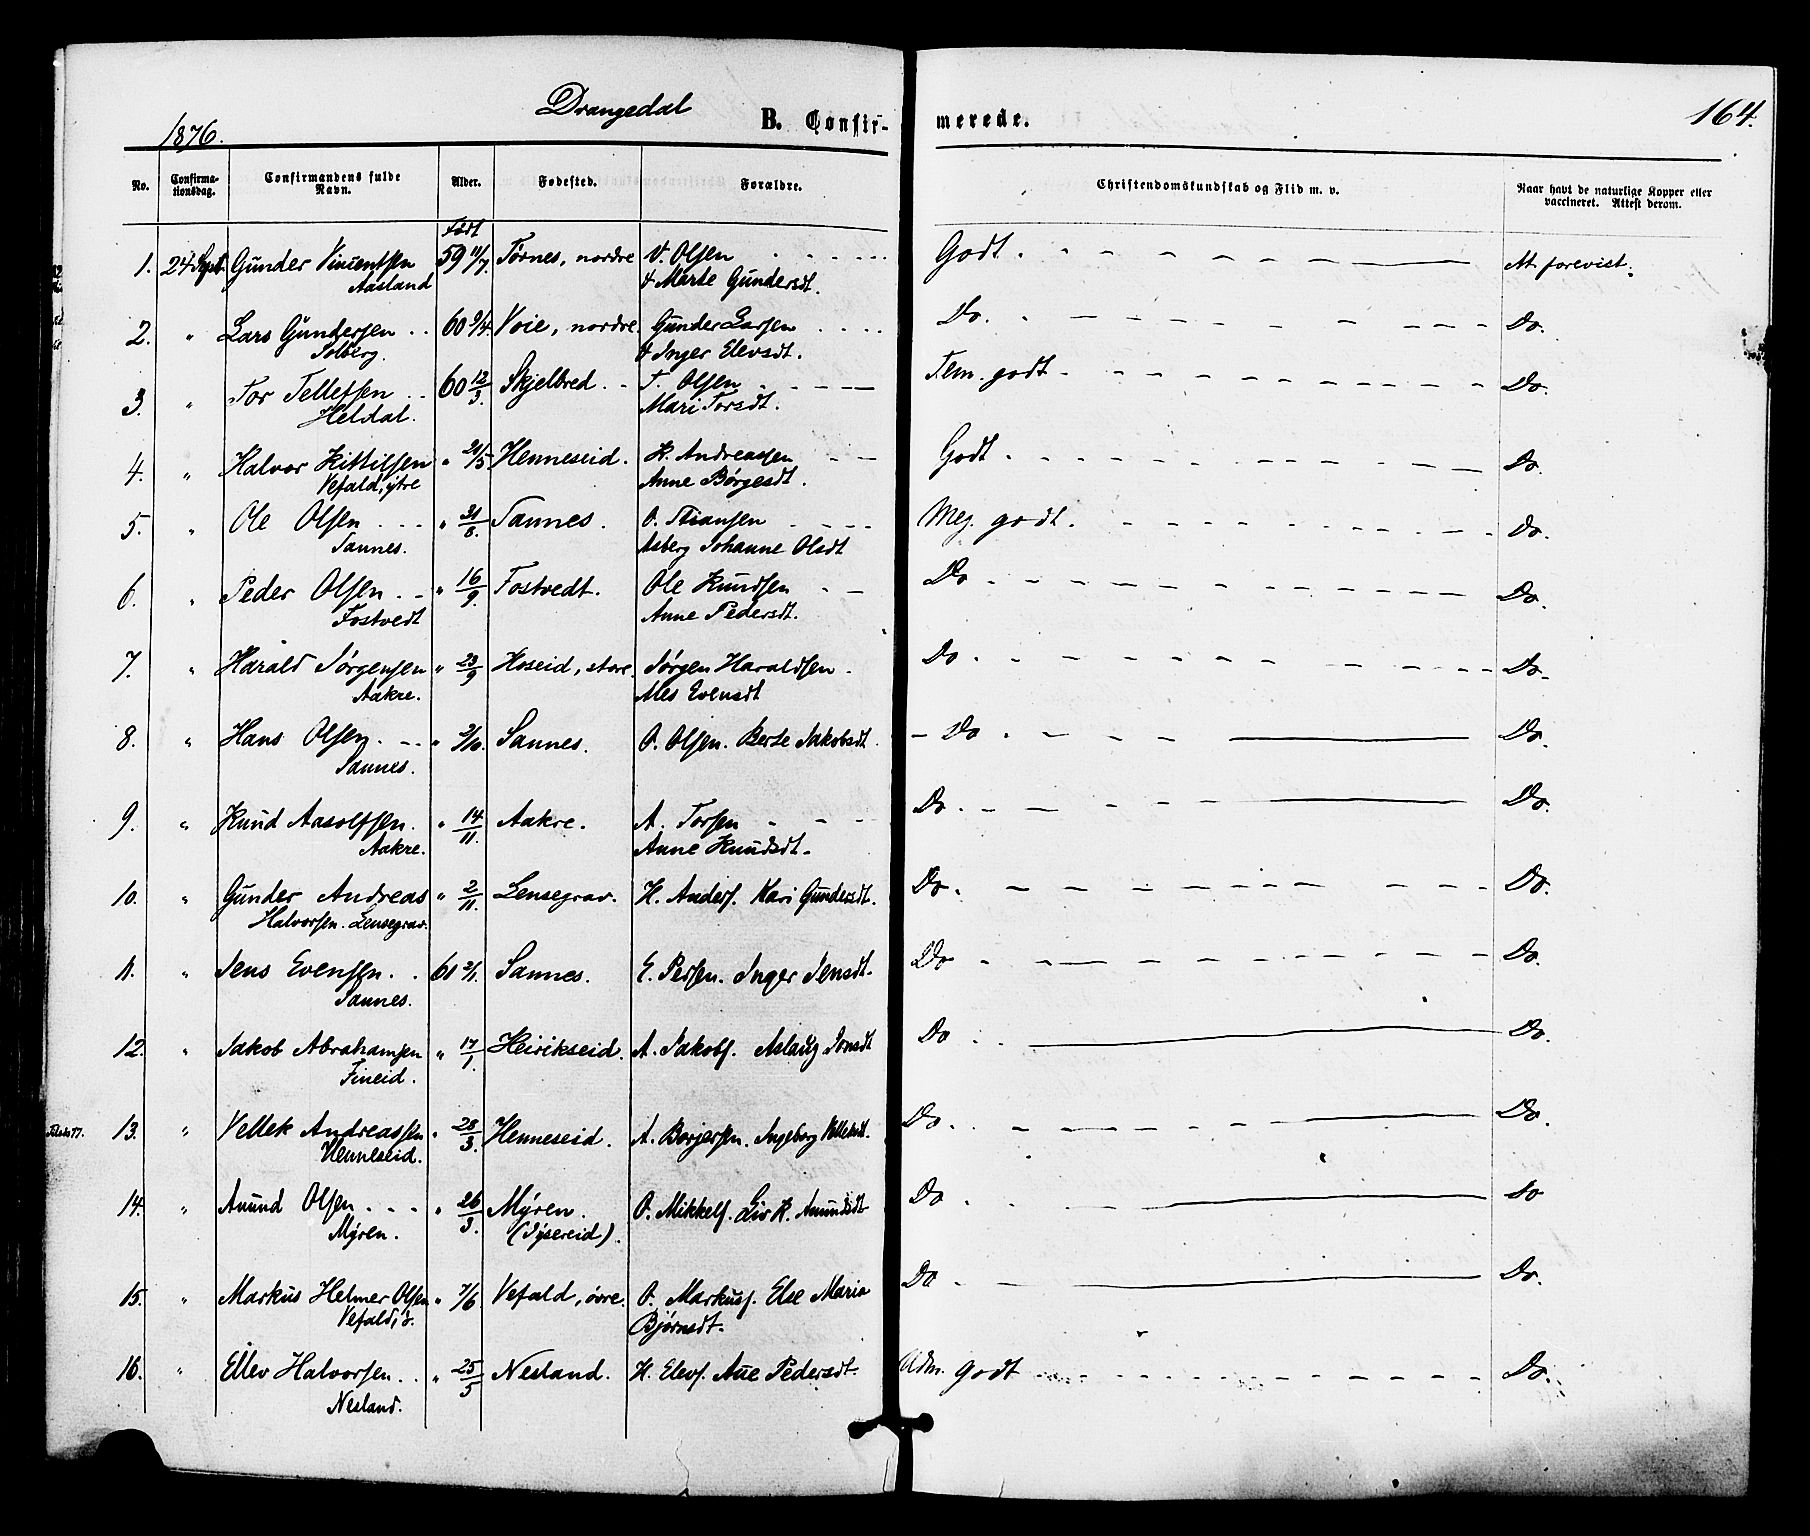 Drangedal
B. Confirmerede.
164.
1876.
No. Confirmationsdag. Confirmandens fulde Navn. Alder. Fødested. Forældre. Christendomskundskab og Flid m. v. Naar havt de naturlige Kopper eller vaccineret. Attest derom.
Født
1. 24 Sept. Gunder Vincentsen 59 11/7. Tørnes, nordre V. Olsen Godt. At forevist.
Aasland & Marte Gundersdt.
2. " Lars Gundersen 60 9/4. Voie, nordre. Gunder Larsen Do. Do.
Solberg. & Inger Elevsdt.
3. " Tor Tellefsen 60 12/3. Skjelbred. T. Olsen Tem. godt Do.
Heldal. Mari Torsdt.
4. " Halvor Kittilsen " 21/5 Henneseid. K. Andreassen Godt Do.
Vefald, ytre Anne Børgesdt.
5. " Ole Olsen " 31/8. Sannes. O. Stiansen Meg. godt. Do.
Sannes. Asberg Johanne Olsdt
6. " Peder Olsen " 16/9. Fostvedt. Ole Knudsen Do Do.
Fostvedt Anne Pedersdt.
7. " Harald Jørgensen " 23/9 Hoseid, store. Jørgen Haraldsen Do Do.
Aakre. Mes Evensdt
8. " Hans Olsen " 3/10. Sannes. O. Olsen. Berte Jakobsdt. Do Do.
Sannes.
9. " Knud Aasolfsen. " 14/11. Aakre. A. Torsen Do. Do.
Aakre. Anne Knudsdt.
10. " Gunder Andreas " 2/11. Lensegrav. H. Anders. Kari Gundersdt. Do. Do.
Halvorsen. Lensegrav.
11. " Jens Evensen 61 2/1. Sannes. E. Persen. Inger Jensdt. Do Do.
Sannes.
12. " Jakob Abrahamsen " 17/1. Heirikseid. A. Jakobs. Aslaug Jonsdt Do Do.
Fineid.
13. " Vellek Andreassen " 28/3. Henneseid. A. Børjersen. Ingeborg Velleksdt. Do. Do.
Henneseid.
14. " Anund Olsen " 26/3. Myren. O. Mikkels. Liv K. Anundsdt Do Do
Myren. (Sysereid).
15. " Markus Helmer Olsen " 7/6 Vefald, övre. O. Markuss. Else Maria Do Do.
Vefald, ö. Bjørnsdt.
16. " Ellev Halvorsen " 25/5 Nesland. H. Elevs. Aae Pedersdt. Udm. godt Do.
Nesland.